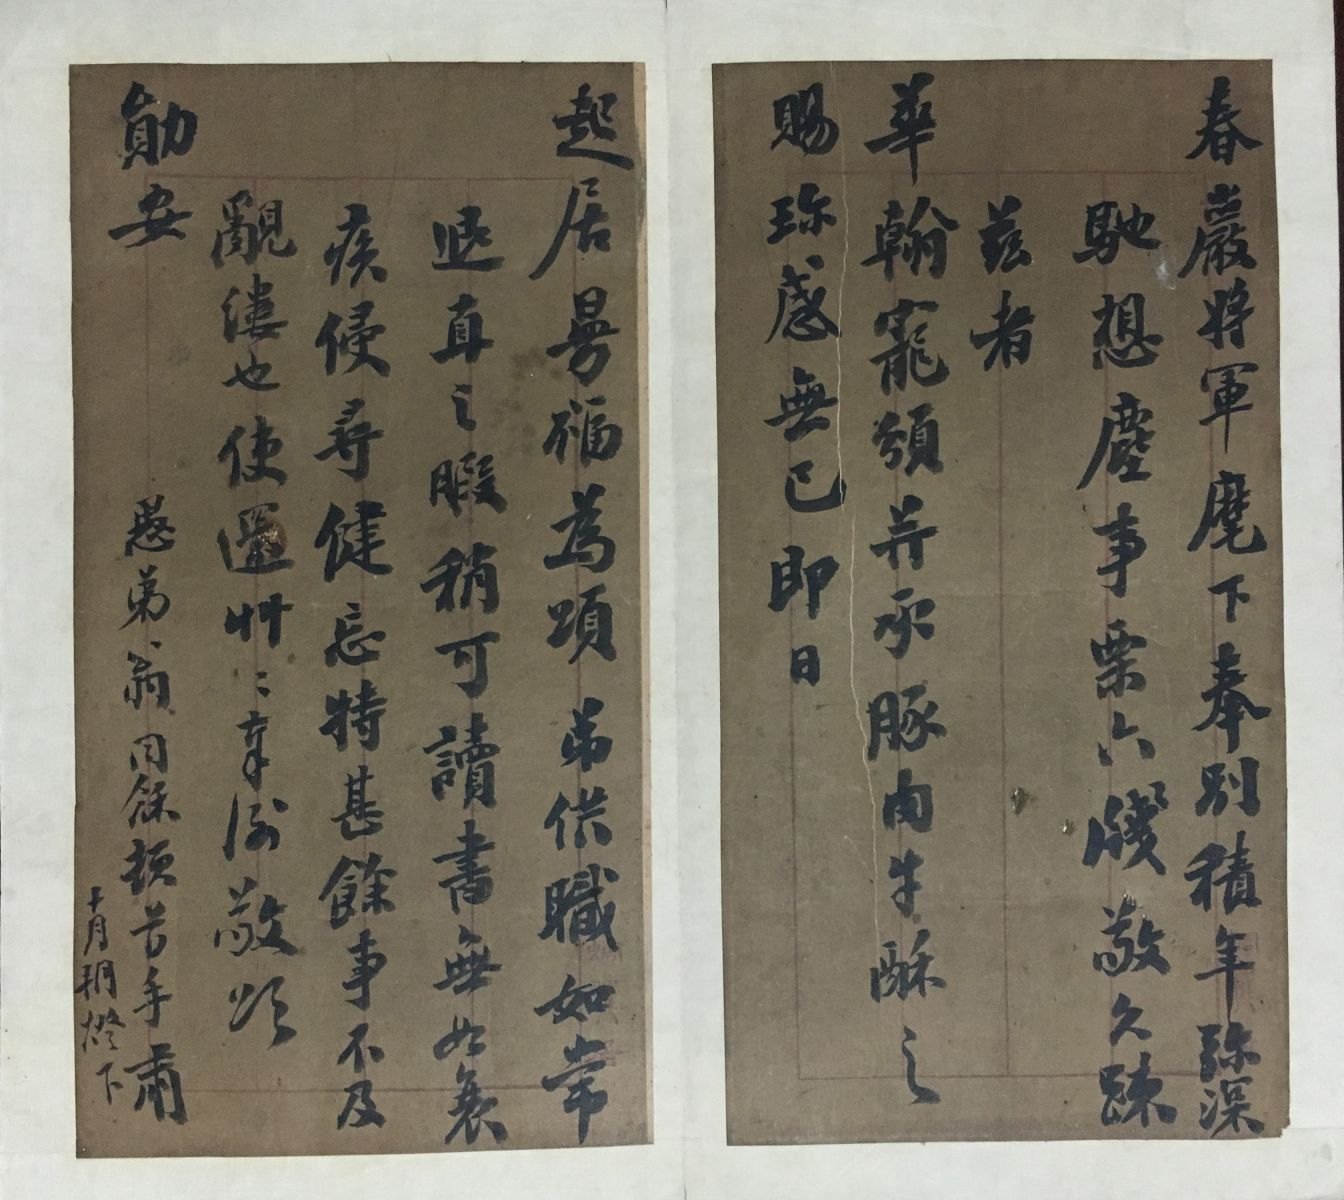 春巖將軍麾下奉別積年弥深
馳想塵事栗六牋敬久疎
茲者
華翰寵頒并承豚肉牛酥之
賜珎感無已即日
起居曼福為頌弟供職如常
退直之暇稍可讀書無如衰
疾侵尋健忘特甚餘事不及
覼縷也使還艸〻奉謝敬頌
勛安
愚弟翁同龢頓首手肅
十月朔燈下